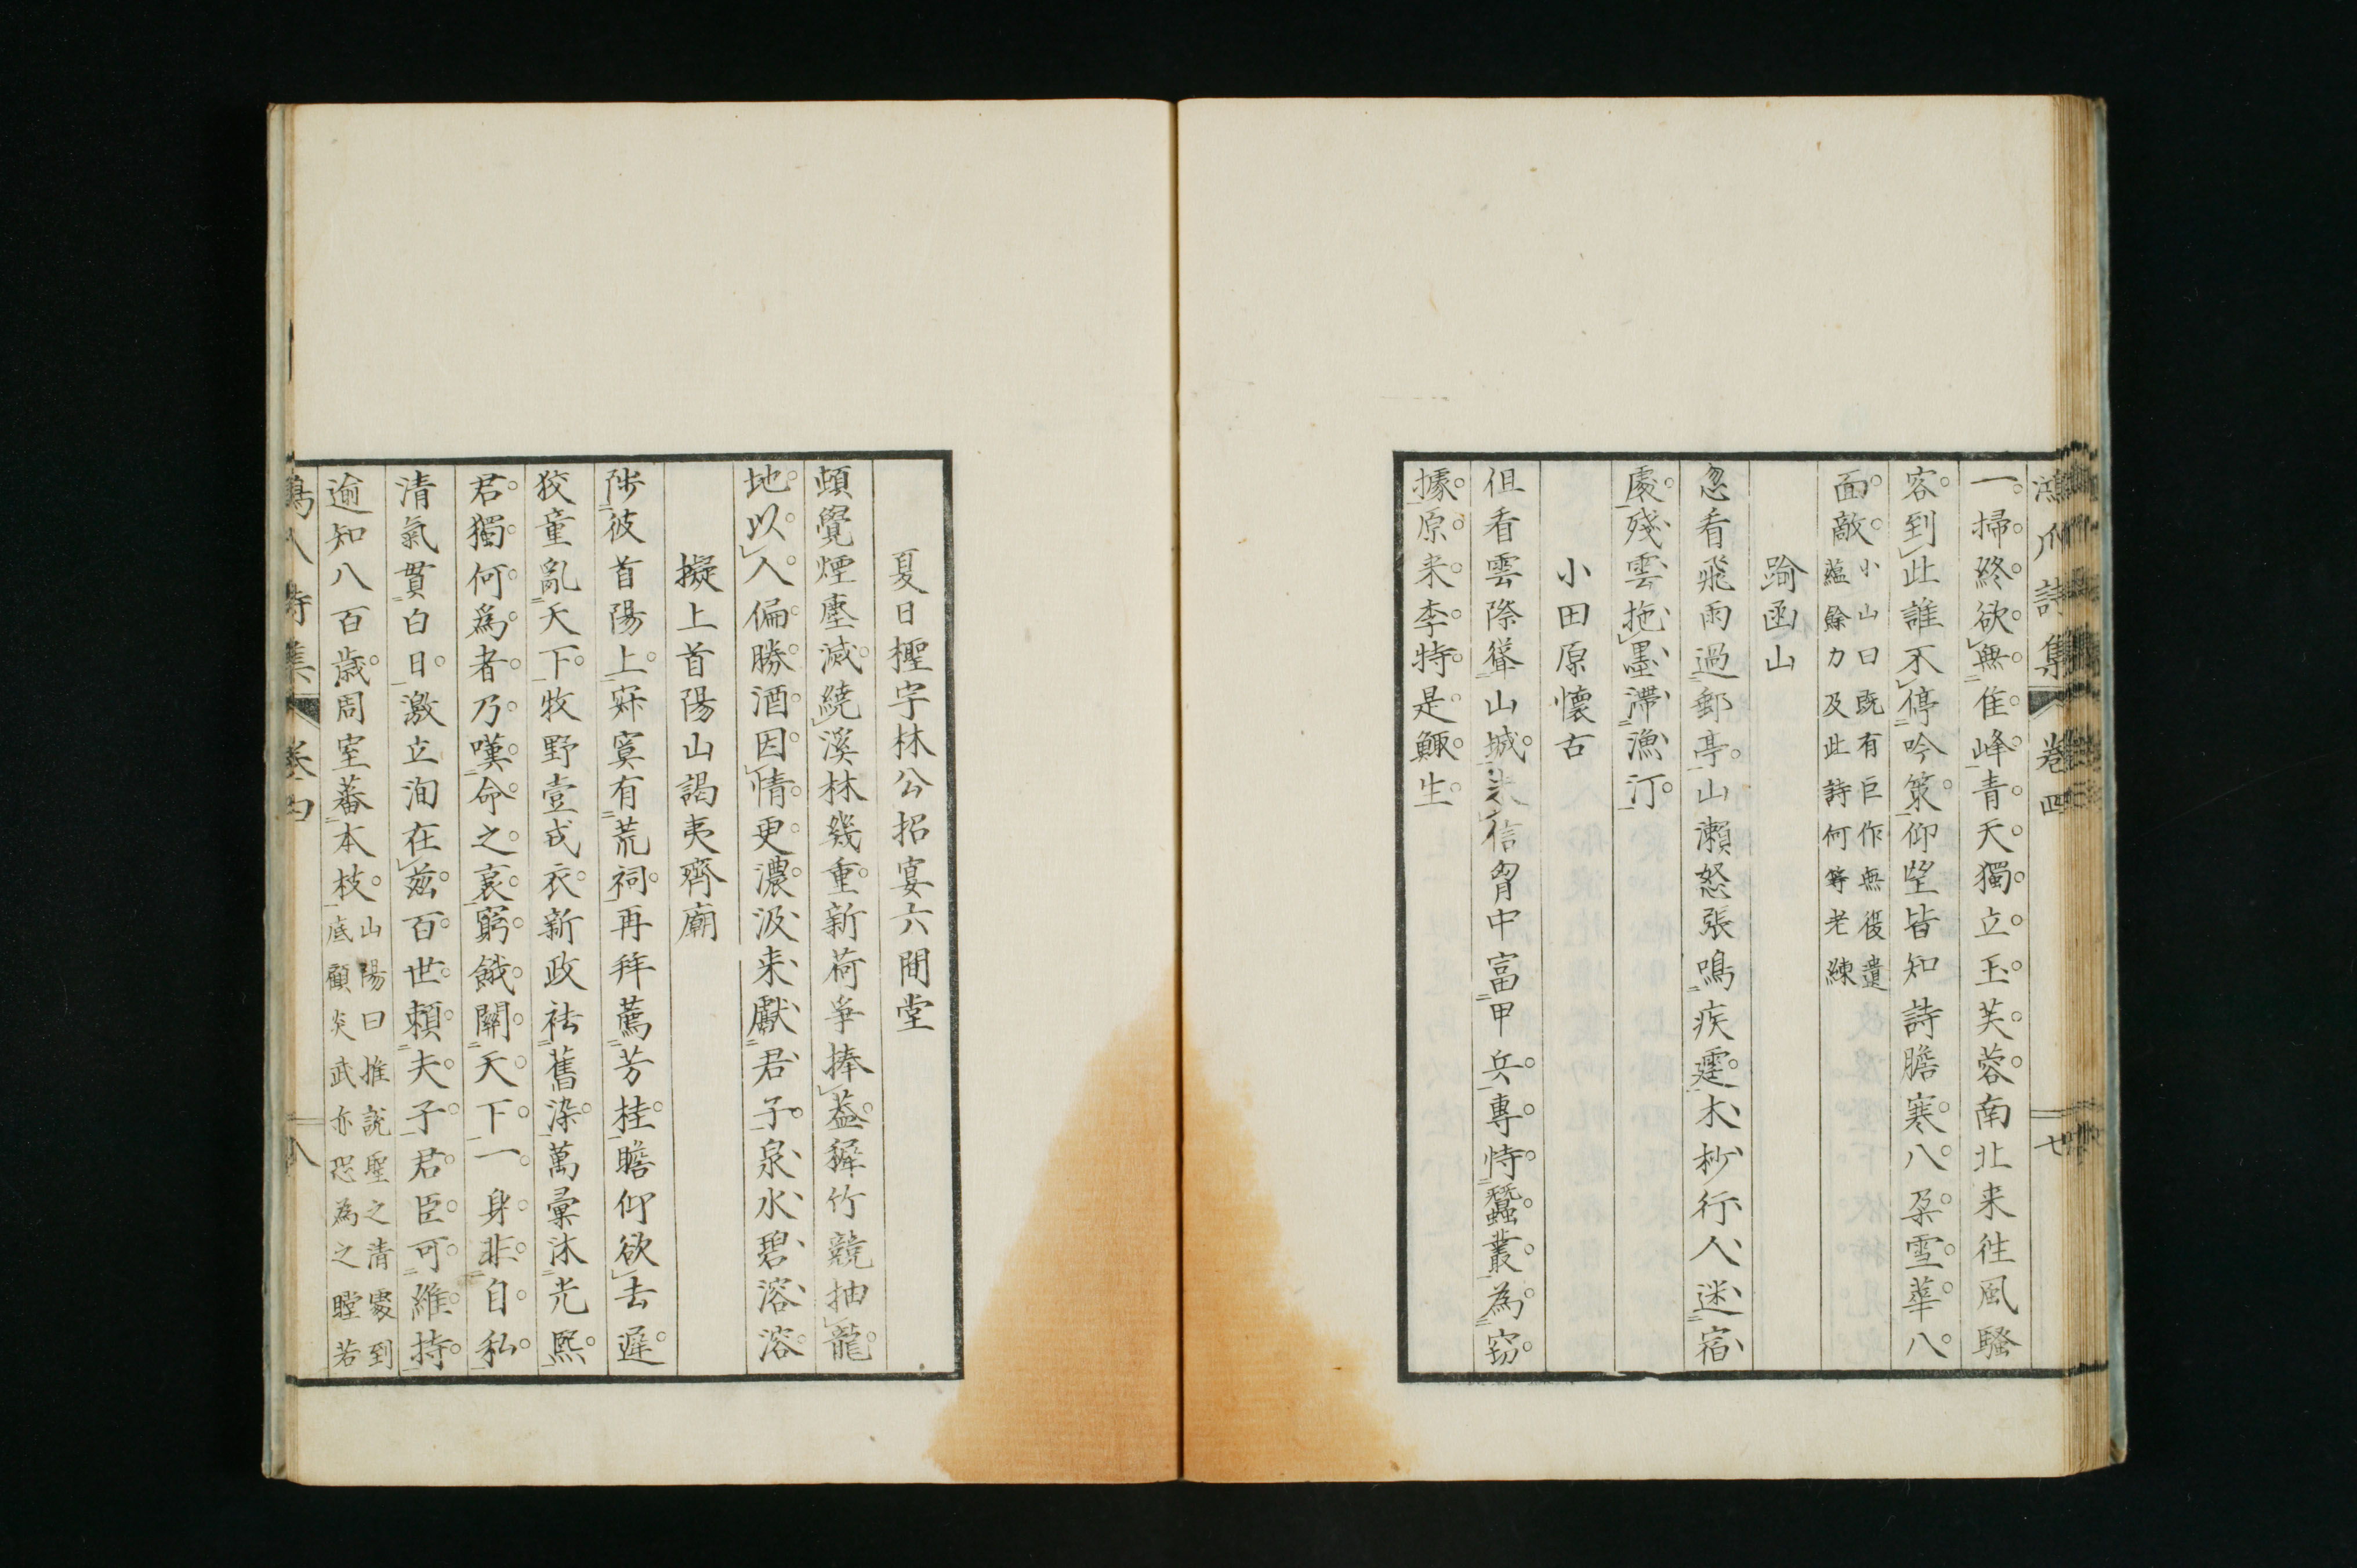 鴻爪詩集 卷四 七
一掃終欲無隹峰青天獨立玉芙蓉南北来往風騷
客到此誰不停吟筞仰望皆知詩膽寒八朶雪華八
面敵小山曰既有巨作無後遺
蘊餘力及此詩何等老練
踰函山
忽看飛雨過郵亭山瀨怒張鳴疾霆木杪行人迷宿
處殘雲拖墨滯漁汀
小田原懷古
但看雲際聳山城未信胷中富甲兵專恃蠶叢為窃
據原来李特是鯫生
夏日檉宇林公招宴六間堂
頓覺煙塵減繞溪林幾重新荷爭捧葢穉竹競抽龍
地以人偏勝酒因情更濃汲来獻君子泉水碧溶溶
擬上首陽山謁夷齊廟
陟彼首陽上寂寞有荒祠再拜薦芳桂瞻仰欲去遲
狡童亂天下牧野壹戎衣新政袪舊染萬彙沐光熙
君獨何為者乃嘆命之衰窮餓關天下一身非自私
清氣貫白日激立洵在茲百世賴夫子君臣可維持
逾知八百歲周室蕃本枝山陽曰推說聖之清處到
底顧炎武亦恐為之瞠若
卷四 八